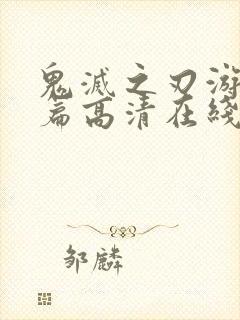 鬼灭之刃游
篇高清在线
邹麟